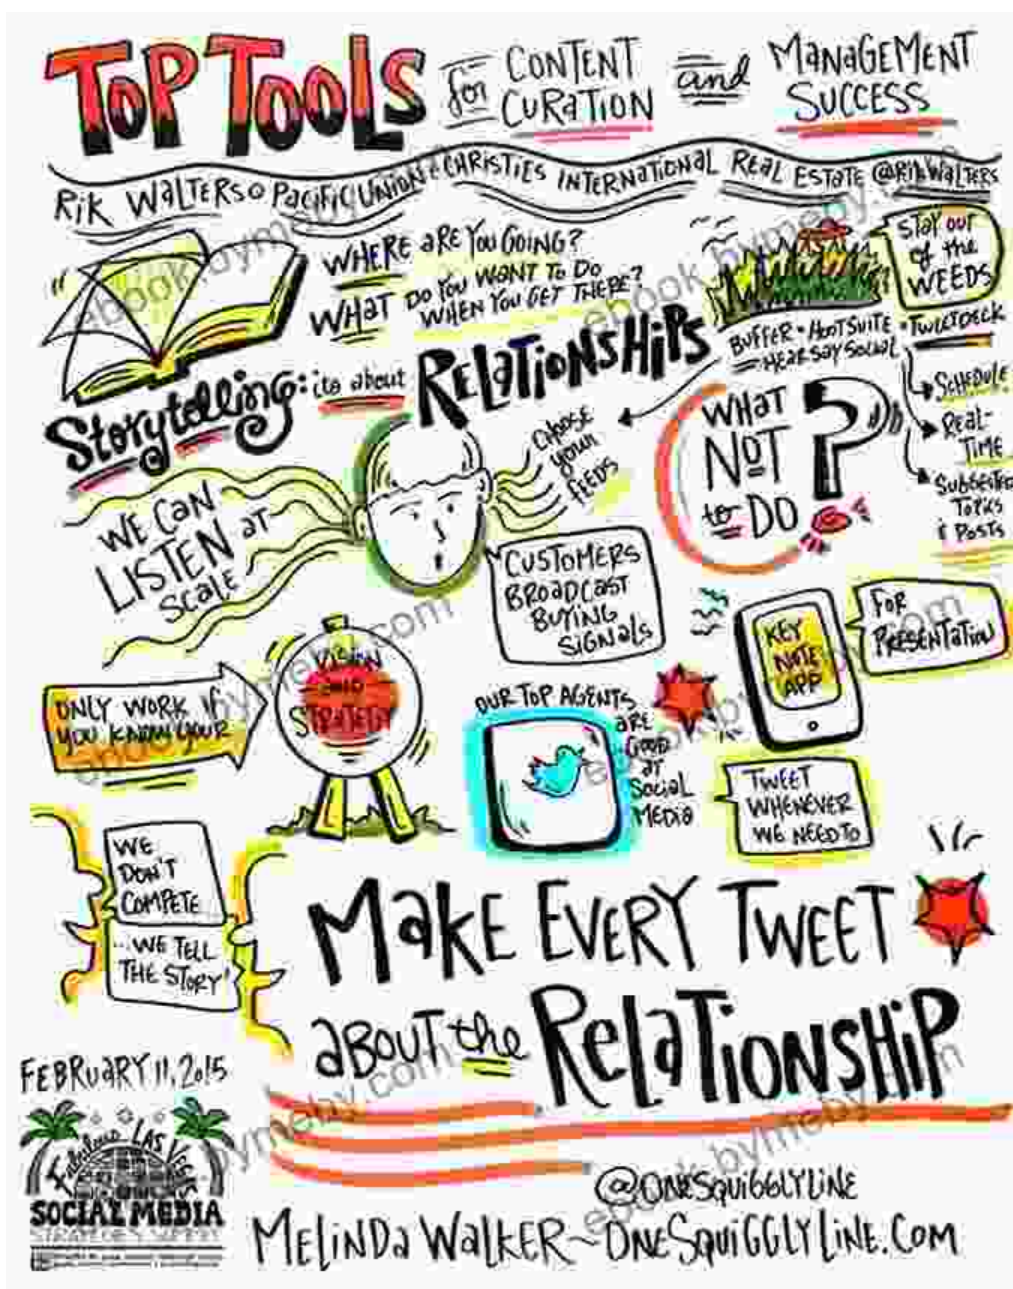 TOP TOOLS for CONTENT CURATION and MANAGEMENT SUCCESS
RIK WALTERS @ PACIFIC UNION & CHRISTIES INTERNATIONAL REAL ESTATE @RIKWALTERS
WHERE ARE YOU GOING?
WHAT DO YOU WANT TO DO
WHEN YOU GET THERE?
STAY OUT
OF the
WEEDS
BUFFER • HOOTSUITE • TWEETDECK
HEARSAY SOCIAL
SCHEDULE
REAL-
TIME
SUGGESTED
TOPICS
& POSTS
Storytelling: its about RELATIONSHIPS
CHOOSE
your
FEEDS
WHAT
NOT
to DO ?
WE CAN
LISTEN AT
SCALE
CUSTOMERS
BROADCAST
BUYING
SIGNALS
KEY
NOTE
APP
FOR
PRESENTATION
ONLY WORK IF
YOU KNOW YOUR
VISION
AND
STRATEGY
OUR TOP AGENTS
ARE
GOOD
AT
SOCIAL
MEDIA
TWEET
WHENEVER
WE NEED TO
WE
DON'T
COMPETE
...WE TELL
THE STORY'
MAKE EVERY TWEET
ABOUT the RELATIONSHIP
FEBRUARY 11, 2015
Fabulous LAS VEGAS
SOCIAL MEDIA
STRATEGIES SUMMIT
@ONESQUIGGLYLINE
MELINDA WALKER ~ ONESQUIGGLYLINE.COM
ebook.bymeby.com